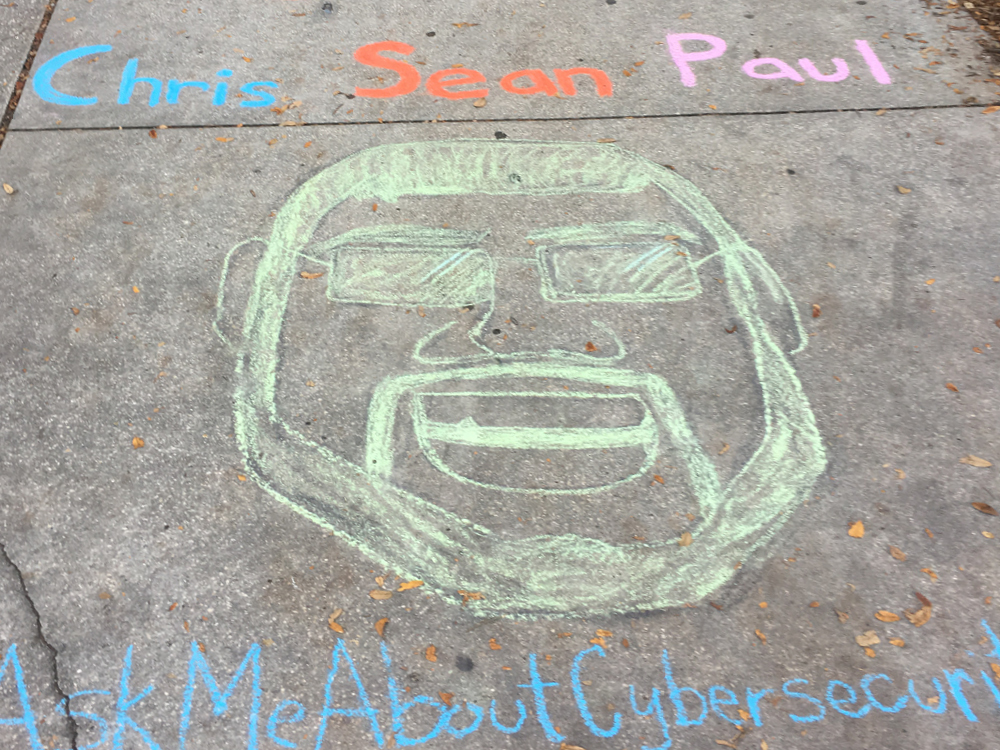 Chris Sean Paul
Ask Me About Cybersecurit